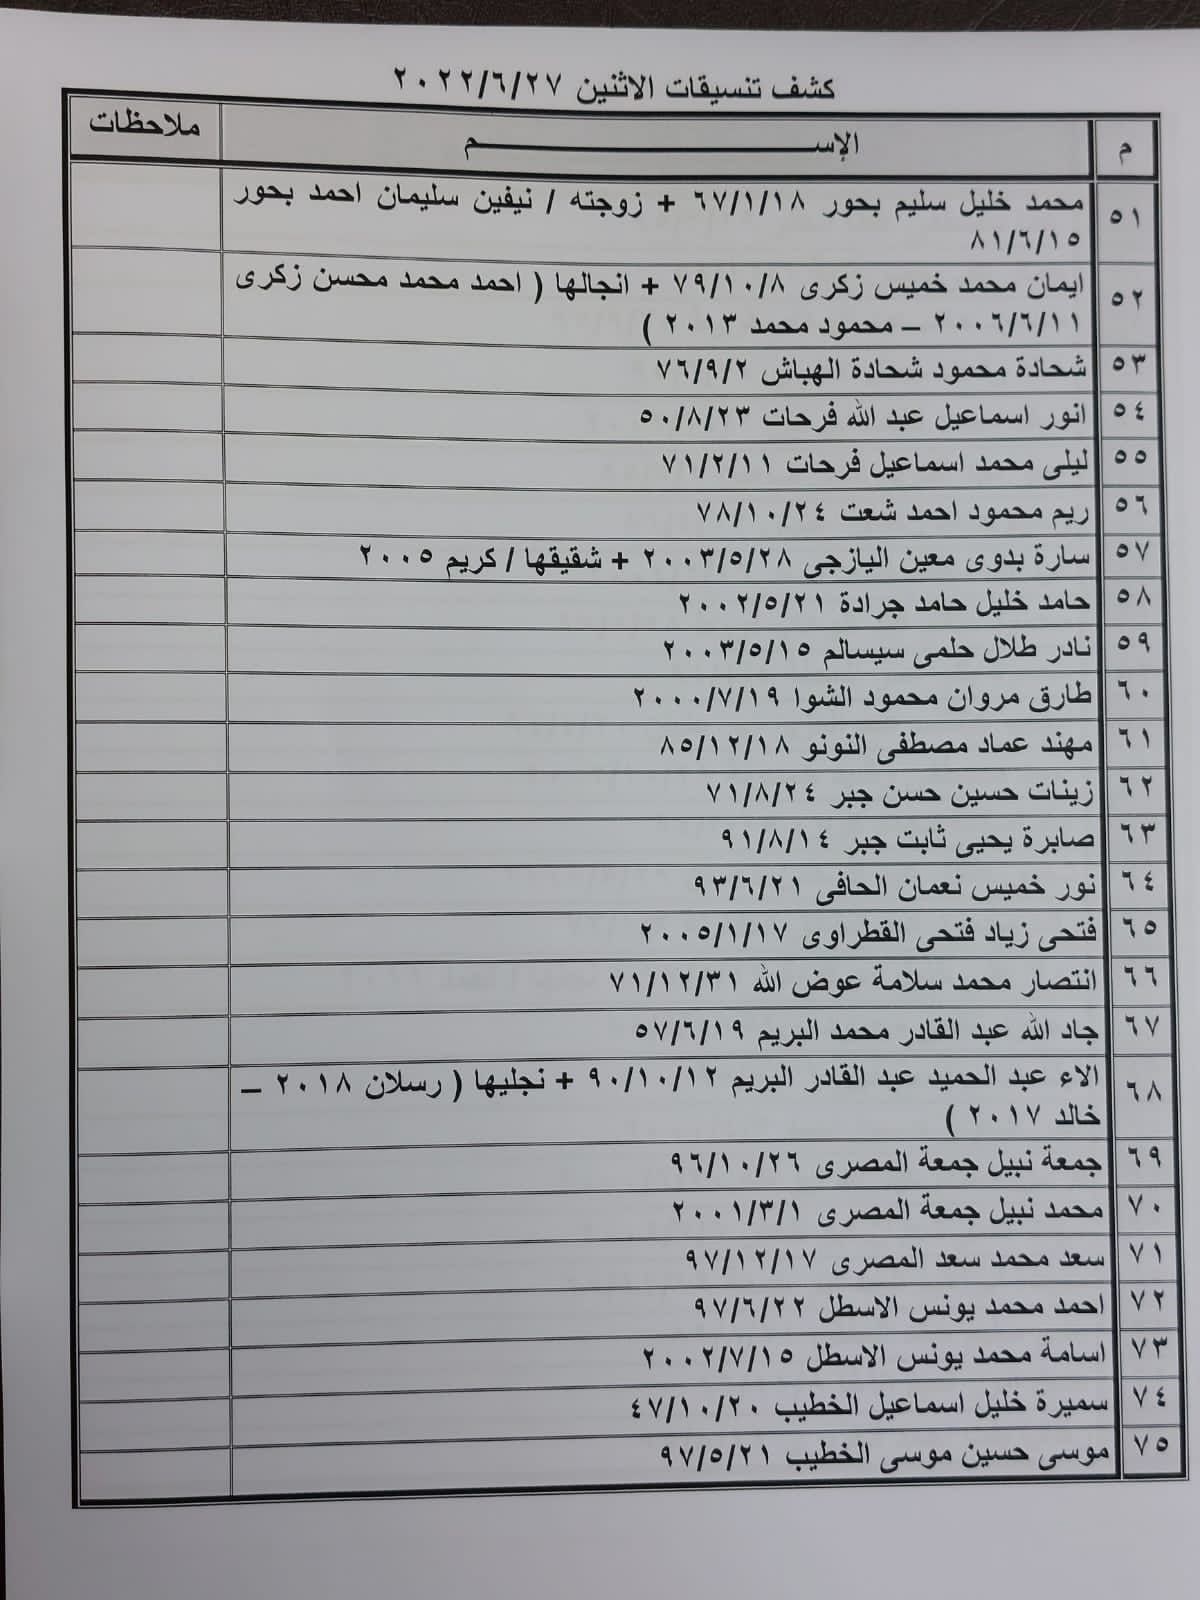 كشف تنسيقات الاثنين ٢٠٢٢/٦/٢٧
م الإســــــــم ملاحظات
٥١ محمد خليل سليم بحور ٦٧/١/١٨ + زوجته / نيفين سليمان احمد بحور
٨١/٦/١٥
٥٢ ايمان محمد خميس زكرى ٧٩/١٠/٨ + انجالها ( احمد محمد محسن زكرى
٢٠٠٦/٦/١١ – محمود محمد ٢٠١٣ )
٥٣ شحادة محمود شحادة الهباش ٧٦/٩/٢
٥٤ انور اسماعيل عبد الله فرحات ٥٠/٨/٢٣
٥٥ ليلى محمد اسماعيل فرحات ٧١/٢/١١
٥٦ ريم محمود احمد شعت ٧٨/١٠/٢٤
٥٧ سارة بدوى معين اليازجى ٢٠٠٣/٥/٢٨ + شقيقها / كريم ٢٠٠٥
٥٨ حامد خليل حامد جرادة ٢٠٠٢/٥/٢١
٥٩ نادر طلال حلمى سيسالم ٢٠٠٣/٥/١٥
٦٠ طارق مروان محمود الشوا ٢٠٠٠/٧/١٩
٦١ مهند عماد مصطفى النونو ٨٥/١٢/١٨
٦٢ زينات حسين حسن جبر ٧١/٨/٢٤
٦٣ صابرة يحيى ثابت جبر ٩١/٨/١٤
٦٤ نور خميس نعمان الحافى ٩٣/٦/٢١
٦٥ فتحى زياد فتحى القطراوى ٢٠٠٥/١/١٧
٦٦ انتصار محمد سلامة عوض الله ٧١/١٢/٣١
٦٧ جاد الله عبد القادر محمد البريم ٥٧/٦/١٩
٦٨ الاء عبد الحميد عبد القادر البريم ٩٠/١٠/١٢ + نجليها ( رسلان ٢٠١٨ –
خالد ٢٠١٧ )
٦٩ جمعة نبيل جمعة المصرى ٩٦/١٠/٢٦
٧٠ محمد نبيل جمعة المصرى ٢٠٠١/٣/١
٧١ سعد محمد سعد المصرى ٩٧/١٢/١٧
٧٢ احمد محمد يونس الاسطل ٩٧/٦/٢٢
٧٣ اسامة محمد يونس الاسطل ٢٠٠٢/٧/١٥
٧٤ سميرة خليل اسماعيل الخطيب ٤٧/١٠/٢٠
٧٥ موسى حسين موسى الخطيب ٩٧/٥/٢١